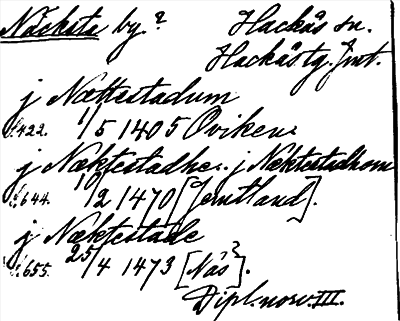 Näcksta by? Hackås sn.
Hackås tg. Jmt.
j Nættestadum
s. 422. 1/5 1405 Oviken.
j Næktestadhe. j Næktestadhom
s. 644. 10/2 1470 [Jemtland].
j Næktestade
s. 655. 25/4 1473 [Näs?].
Dipl. norv. III.